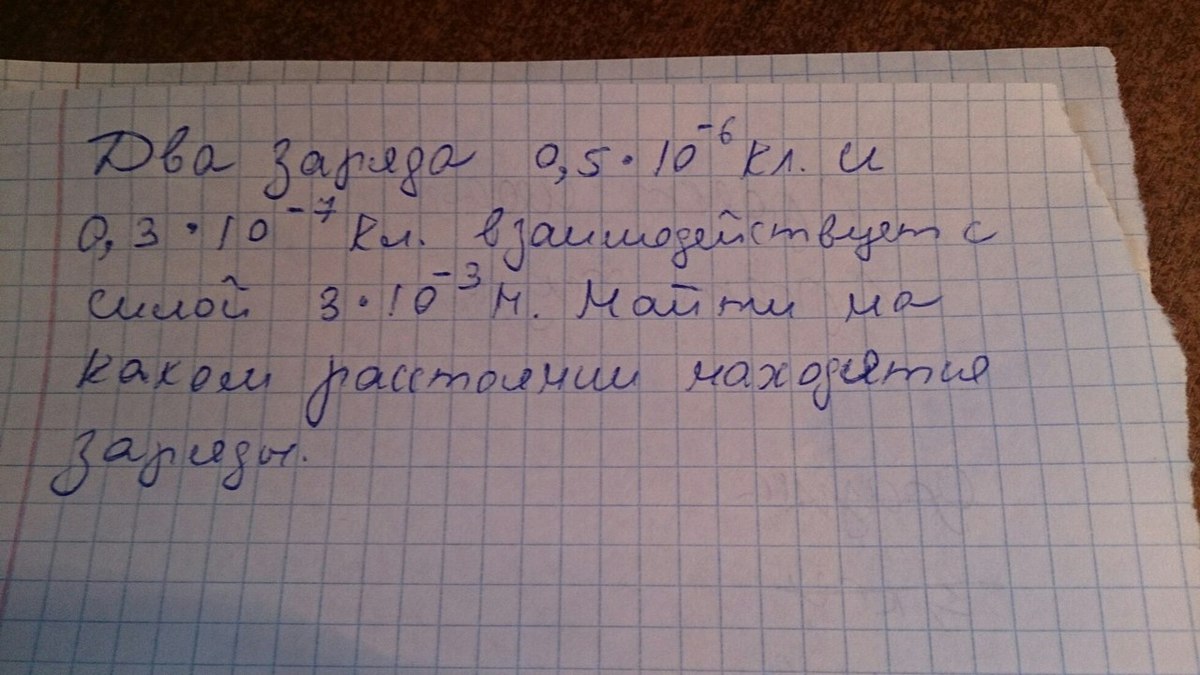 Два заряда 0,5·10⁻⁶ Кл. и
0,3·10⁻⁷ Кл. взаимодействует с
силой 3·10⁻³ Н. Найти на
каком расстоянии находятся
заряды.